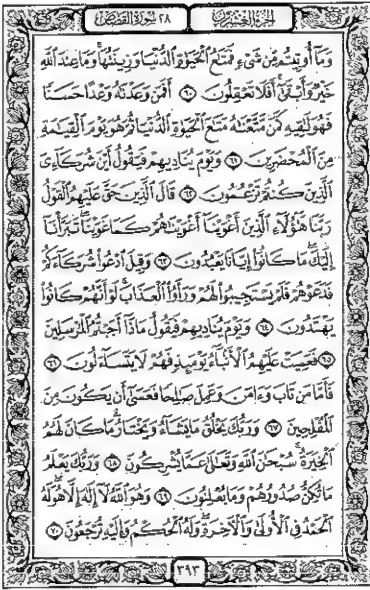 الجزء العشرون
٢٨ سورة القصص
وَمَآ أُوتِيتُم مِّن شَىْءٍ فَمَتَٰعُ ٱلْحَيَوٰةِ ٱلدُّنْيَا وَزِينَتُهَا ۚ وَمَا عِندَ ٱللَّهِ
خَيْرٌ وَأَبْقَىٰٓ ۚ أَفَلَا تَعْقِلُونَ ٦٠ أَفَمَن وَعَدْنَٰهُ وَعْدًا حَسَنًا
فَهُوَ لَٰقِيهِ كَمَن مَّتَّعْنَٰهُ مَتَٰعَ ٱلْحَيَوٰةِ ٱلدُّنْيَا ثُمَّ هُوَ يَوْمَ ٱلْقِيَٰمَةِ
مِنَ ٱلْمُحْضَرِينَ ٦١ وَيَوْمَ يُنَادِيهِمْ فَيَقُولُ أَيْنَ شُرَكَآءِىَ
ٱلَّذِينَ كُنتُمْ تَزْعُمُونَ ٦٢ قَالَ ٱلَّذِينَ حَقَّ عَلَيْهِمُ ٱلْقَوْلُ
رَبَّنَا هَٰٓؤُلَآءِ ٱلَّذِينَ أَغْوَيْنَآ أَغْوَيْنَٰهُمْ كَمَا غَوَيْنَا ۖ تَبَرَّأْنَآ
إِلَيْكَ ۖ مَا كَانُوٓا۟ إِيَّانَا يَعْبُدُونَ ٦٣ وَقِيلَ ٱدْعُوا۟ شُرَكَآءَكُمْ
فَدَعَوْهُمْ فَلَمْ يَسْتَجِيبُوا۟ لَهُمْ وَرَأَوُا۟ ٱلْعَذَابَ ۚ لَوْ أَنَّهُمْ كَانُوا۟
يَهْتَدُونَ ٦٤ وَيَوْمَ يُنَادِيهِمْ فَيَقُولُ مَاذَآ أَجَبْتُمُ ٱلْمُرْسَلِينَ
٦٥ فَعَمِيَتْ عَلَيْهِمُ ٱلْأَنۢبَآءُ يَوْمَئِذٍ فَهُمْ لَا يَتَسَآءَلُونَ ٦٦
فَأَمَّا مَن تَابَ وَءَامَنَ وَعَمِلَ صَٰلِحًا فَعَسَىٰٓ أَن يَكُونَ مِنَ
ٱلْمُفْلِحِينَ ٦٧ وَرَبُّكَ يَخْلُقُ مَا يَشَآءُ وَيَخْتَارُ ۗ مَا كَانَ لَهُمُ
ٱلْخِيَرَةُ ۚ سُبْحَٰنَ ٱللَّهِ وَتَعَٰلَىٰ عَمَّا يُشْرِكُونَ ٦٨ وَرَبُّكَ يَعْلَمُ
مَا تُكِنُّ صُدُورُهُمْ وَمَا يُعْلِنُونَ ٦٩ وَهُوَ ٱللَّهُ لَآ إِلَٰهَ إِلَّا هُوَ ۖ لَهُ
ٱلْحَمْدُ فِى ٱلْأُولَىٰ وَٱلْءَاخِرَةِ ۖ وَلَهُ ٱلْحُكْمُ وَإِلَيْهِ تُرْجَعُونَ ٧٠
٣٩٣